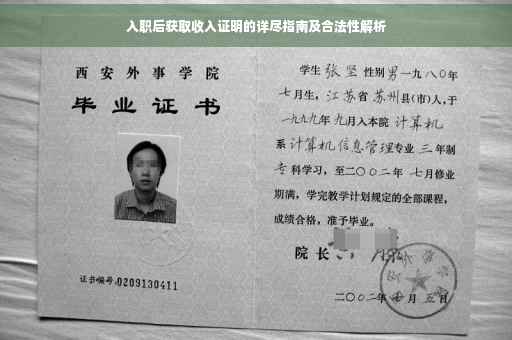 入职后获取收入证明的详尽指南及合法性解析
西安外事学院
毕业证书
证书编号:0209130411
学生 张坚 性别 男 一九八〇年
七月生，江苏省 苏州县(市)人，于
一九九九年 九月入本院 计算机
系 计算机信息管理专业 三 年制
专 科学习，至二〇〇二年 七月修业
期满，学完教学计划规定的全部课程，
成绩合格，准予毕业。
院长
二〇〇二年 七 月 五 日